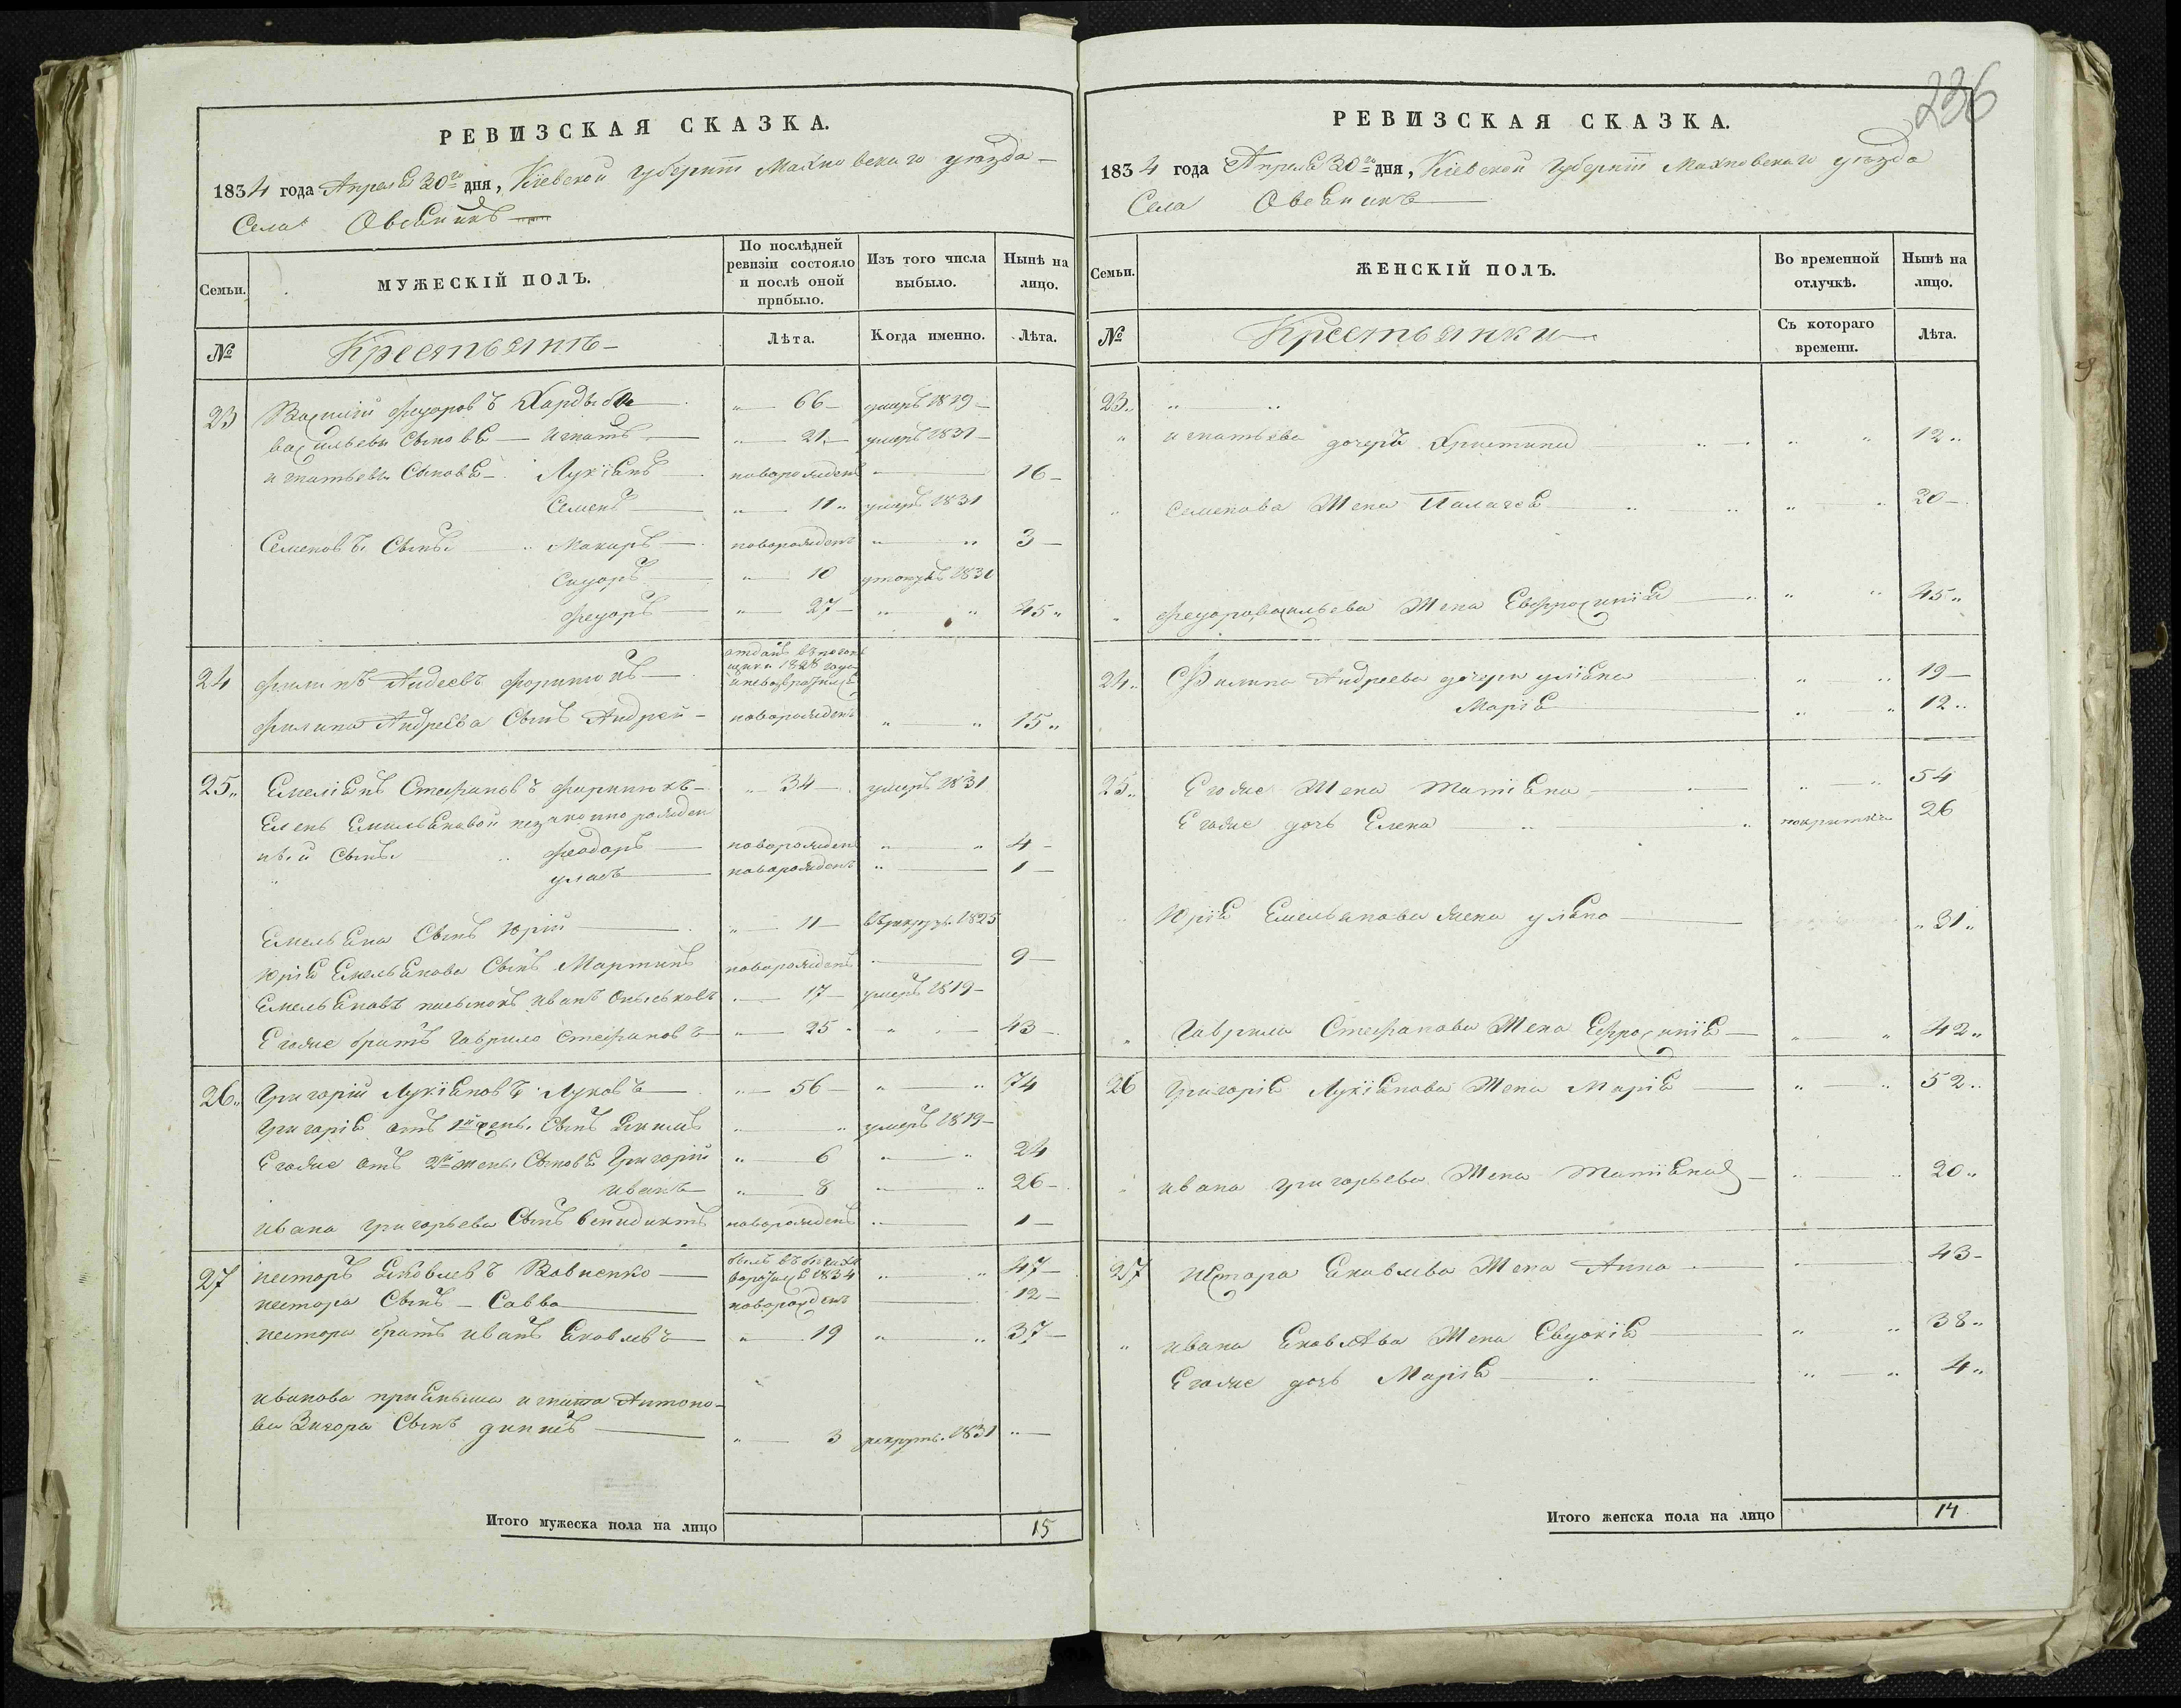 РЕВИЗСКАЯ СКАЗКА.
1834 года Апреля 30го дня, Кіевской Губерніи Махновскаго уезда
Села Овсяникъ
Семьи.
МУЖЕСКІЙ ПОЛЪ.
По послѣдней ревизіи состояло и послѣ оной прибыло.
Изъ того числа выбыло.
Нынѣ на лицо.
№
Крестьянъ
Лѣта.
Когда именно.
Лѣта.
23 Василій Федоровъ 66 умеръ 1819
Васильевы Сыновья Игнатъ 21 умеръ 1831
Игнатьевы Сыновья Лукіянъ новорожденъ 16
Семенъ 11 умеръ 1831
Семеновъ Сынъ Макаръ новорожденъ 3
Сидоръ 10 1831
Федоръ 27 45
24 Филипъ Андеевъ отданъ 1828 года
Филипа Андреева Сынъ Андрей новорожденъ 15
25 Емеліянъ Стефановъ 34 умеръ 1831
Елены Емельяновой незаконно рожден
ный Сынъ Феодоръ новорожденъ 4
Уласъ новорожденъ 1
Емельяна Сынъ Юрій 11 1825
Юрія Емельянова Сынъ Мартинъ новорожденъ 9
Емельяновъ Иванъ 17 умеръ 1819
Егоже братъ Гаврило Стефановъ 25 43
26 Григорій Лукіяновъ Луковъ 56 74
Григорія отъ 1й жены Сынъ Якимъ умеръ 1819
Егоже отъ 2й жены Сыновья Григорій 6 24
Иванъ 8 26
Ивана Григорьева Сынъ Венидиктъ новорожденъ 1
27 Несторъ Яковлевъ Вовненко былъ въ бегахъ 1834 47
Нестора Сынъ Савва новорожденъ 12
Нестора братъ Иванъ Яковлевъ 19 37
Иванова приемыша Антоно-
ва Сынъ 3 рекрутъ 1831
Итого мужеска пола на лицо 15
236
РЕВИЗСКАЯ СКАЗКА.
1834 года Апреля 30го дня, Кіевской Губерніи Махновскаго уезда
Села Овсяникъ
Семьи.
ЖЕНСКІЙ ПОЛЪ.
Во временной отлучкѣ.
Нынѣ на лицо.
№
Крестьянки
Съ котораго времени.
Лѣта.
23
Игнатьева дочерь Христина 12
Семенова Жена Палагея 20
Федора Васильева Жена Евфросинія 45
24 Филипа Андреева дочери Уліяна 19
Марія 12
25 Егоже Жена Матіяна 54
Егоже дочь Елена покритка 26
Юрія Емельянова жена Уляна 31
Гаврила Стефанова Жена Ефросинія 42
26 Григорія Лукіянова Жена Марія 52
Ивана Григорьева Жена Матіяна 20
27 Нестора Яковлева Жена Анна 43
Ивана Яковлева Жена Евдокія 38
Егоже дочь Марія 4
Итого женска пола на лицо 14